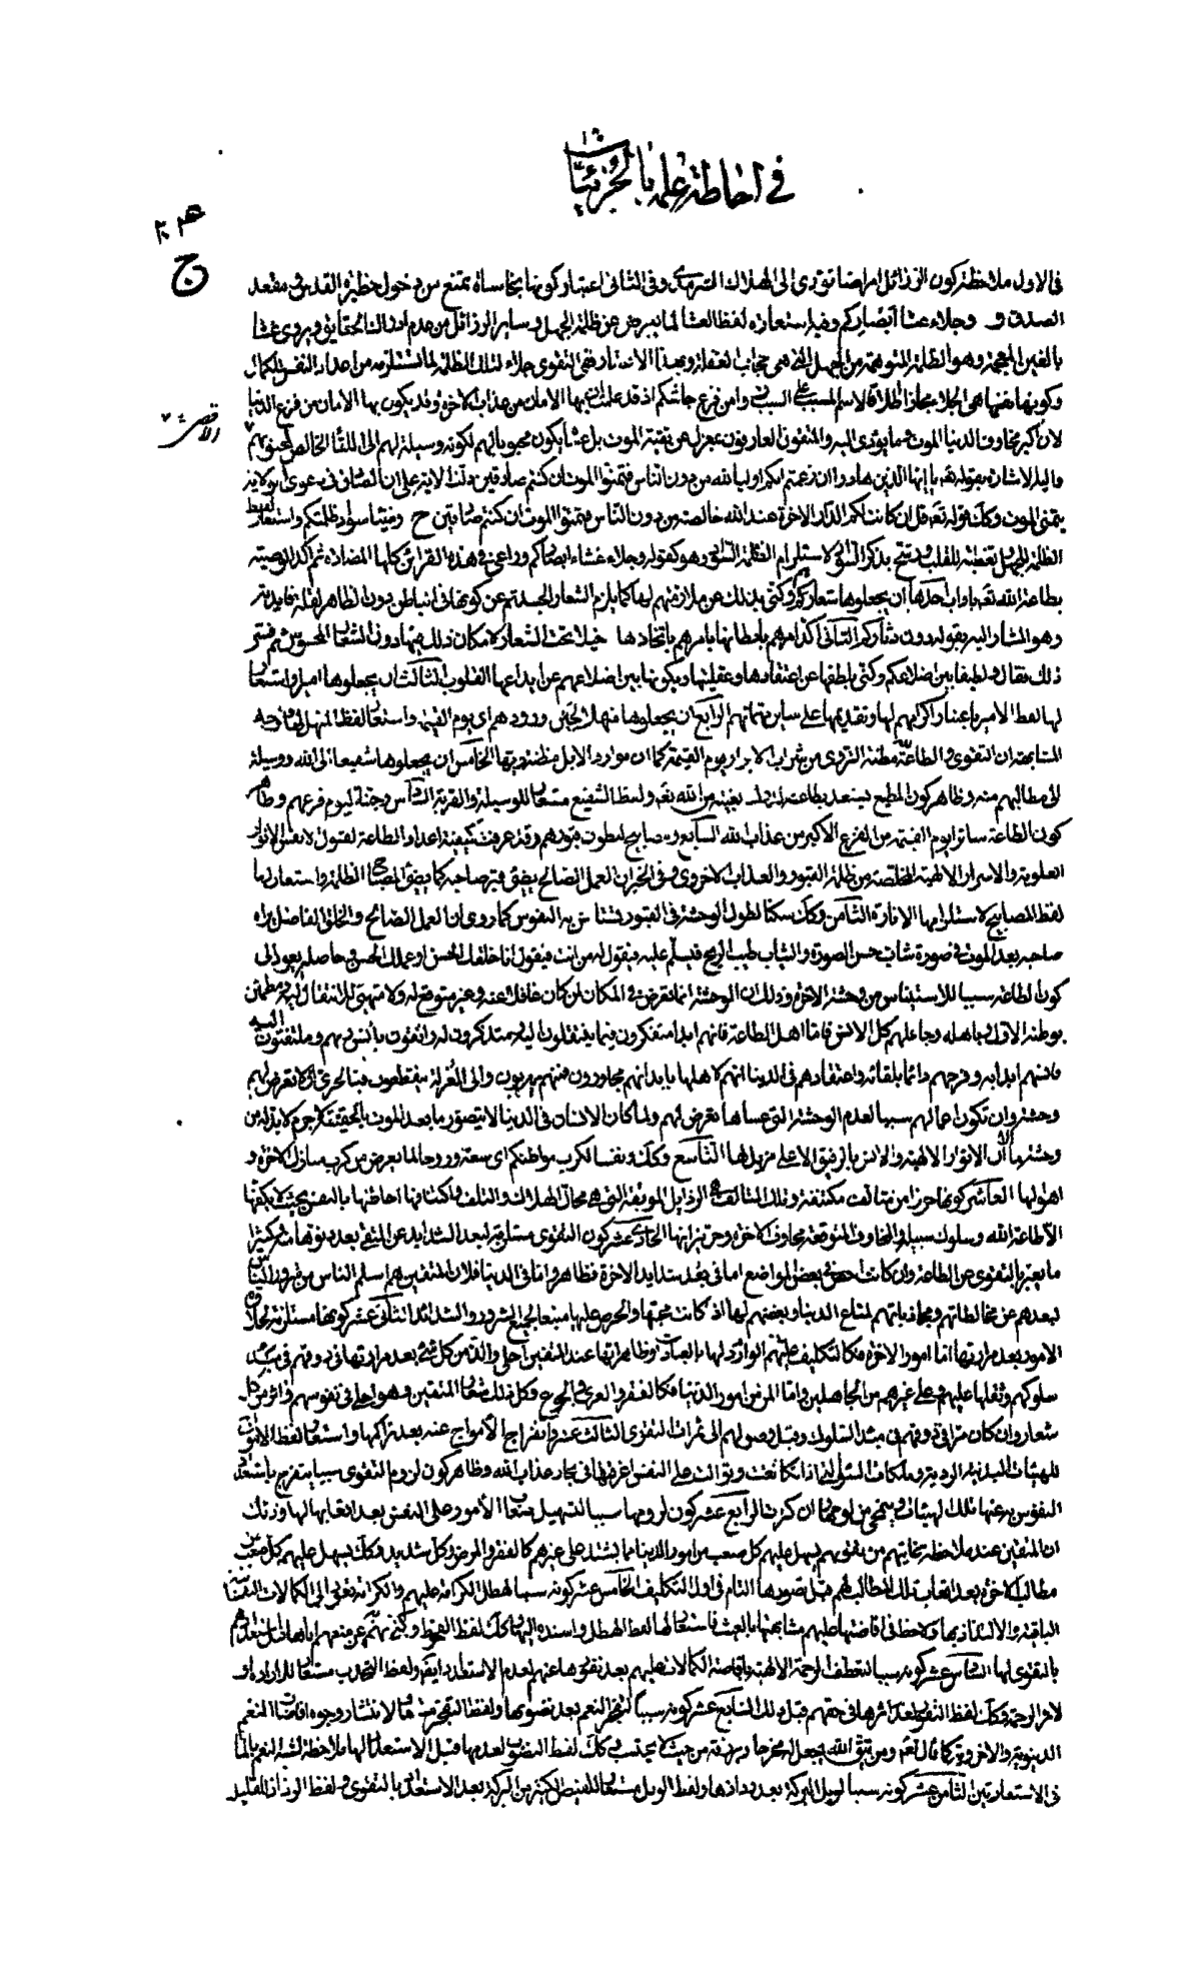 في احاطة علمه بالجزئيات
٣٠٤
ج
في الاول ملاحظة كون الرذائل امراضا تؤدي الى الهلاك السرمدي وفي الثاني اعتبار كونها نجاسات تمنع من دخول حظيرة القدس في مقعد
الصدق و وجلاء عشا أبصاركم وفيه استعارة لفظ العشا لما يعرض عن ظلمة الجهل وساير الرذائل من عدم ادراك الحقايق ويروى غشا
بالغين المعجمة وهو الظلمة المتوهمة من الجهل التي هي حجاب الغفلة وبهذا الاعتبار ففي التقوى جلاء لتلك الظلمة لما تستلزمه من اعداد النفس للكمال
وكونها نفسها هي الجلاء مجازا اطلاقا لاسم المسبب على السبب وامن فزع جاشكم اذ قد علمت ان بها الامان من عذاب الاخرة وقد يكون بها الامان من فزع الدنيا
لان اكبر مخاوف الدنيا الموت وما يؤدي اليه والمتقون العارفون بمعزل عن تقية الموت بل عسى يكون محبوبا لهم لكونه وسيلة لهم الى اللقاء الخالص لمحبوبهم
الاقصى
واليه الاشارة بقوله تع يا ايها الذين هادوا ان زعمتم انكم اولياء لله من دون الناس فتمنوا الموت ان كنتم صادقين دلت الاية على ان الصادق في دعوى الولاية
يتمنى الموت وكك قوله تع قل ان كانت لكم الدار الاخرة عند الله خالصة من دون الناس فتمنوا الموت ان كنتم صادقين ح وضياء سواد ظلمتكم واستعار لفظ
الظلمة للجهل وتغطيته للقلب ورشح بذكر السواد لاستلزام الظلمة السواد وهو كقوله وجلاء عشاء ابصاركم وراعى في هذه القراين كلها المضادة ثم اكد الوصية
بطاعة الله تع باداب احدها ان يجعلوها شعارا وكنى بذلك عن ملازمتهم لها كما يلزم الشعار الجسد ثم عن كونها في الباطن دون الظاهر لقلة فايدته
وهو المشار اليه بقوله دون دثاركم الثاني اكد امرهم بابطانها بامرهم باتخاذها دخيلا تحت الشعار لامكان ذلك فيها دون الشعار المحسوس ثم فسر
ذلك بقال ولطيفا بين اضلاعكم وكنى بلطفها عن اعتقادها وعقليتها وبكونها بين اضلاعهم عن ايداعها القلوب الثالث ان يجعلوها اميرا واستعار
لها لفظ الامير باعتبار اكرامهم لها وتقديمها على ساير مهماتهم الرابع ان يجعلوها منهلا لحين ورودهم اي يوم القيمة واستعار لفظ المنهل لها ووجه
المشابهة ان التقوى والطاعة مظنة التروي من شراب الابرار يوم القيمة كما ان موارد الابل مظنة ريها الخامس ان يجعلوها شفيعا الى الله ووسيلة
الى مطالبهم منه وظاهر كون المطيع يستعد بطاعته لدرك بغيته من الله تع ولفظ الشفيع مستعار للوسيلة والقربة السادس وجنة ليوم فزعهم وظاهر
كون الطاعة ساترا يوم القيمة من الفزع الاكبر من عذاب الله السابع ومصابيح لبطون قبورهم وقد عرفت كيفية اعداد الطاعة لقبول الانفس الانوار
العلوية والاسرار الالهية المخلصة من ظلمة القبور والعذاب الاخروي وفي الخبر ان العمل الصالح يضئ قبر صاحبه كما يضئ المصباح الظلمة واستعار لها
لفظ المصابيح لاستلزامها الانارة الثامن وكك سكنا لطول الوحشة في القبور تستانس به النفوس كما روي ان العمل الصالح والخلق الفاضل يراه
صاحبه بعد الموت في صورة شاب حسن الصورة والثياب طيب الريح فيسلم عليه فيقول له من انت فيقول انا خلقك الحسن او عملك الحسن وحاصله يعود الى
كون الطاعة سببا للاستيناس من وحشة الاخرة وذلك ان الوحشة انما تعرض في المكان لمن كان غافلا عنه وغير متوقع له ولا متهيئ للانتقال اليه ومطمئن
بوطنه الاول وباهله وجاعلهم كل الانس فاما اهل الطاعة فانهم ابدا متفكرون فيما ينتقلون اليه ومتذكرون له واثقون بانس ربهم وملتفتون اليه
فانسهم ابدا به وفرحهم دائما بلقائه واعتقادهم في الدنيا انهم لاهلها بابدانهم مجاورون فمنهم يهربون والى العزلة ينقطعون فبالحري ان لا تعرض لهم
وحشة وان تكون اعمالهم سببا لعدم الوحشة التي عساها تعرض لهم ولما كان الانسان في الدنيا لا يتصور ما بعد الموت بالحقيقة لا جرم لا بد له من
وحشة ما الا ان الانوار الالهية والانس بالرفيق الاعلى مزيل لها التاسع وكك ونفسا لكرب مواطنكم اي سعة وروحا لما يعرض من كرب منازل الاخرة و
اهوالها العاشر كونها حرزا من متالف مكتنفة وتلك المتالف هي الرذايل الموبقة التي هي محال الهلاك والتلف واكتنافها احاطتها بالنفس بحيث لا يكفها
الا طاعة الله وسلوك سبيله والمخاوف المتوقعة مخاوف الاخرة وحر نيرانها الحادي عشر كون التقوى مستلزمة لبعد الشدايد عن المتقي بعد دنوها منه وكثيرا
ما يعبر بالتقوى عن الطاعة وان كانت اخص في بعض المواضع اما في بعد شدايد الاخرة فظاهر واما في الدنيا فلان المتقين هم اسلم الناس من شرور الناس
لبعدهم عن مخالطاتهم ومجاذباتهم لمتاع الدنيا وبغضهم لها اذ كانت محبتها والحرص عليها منبعا لجميع الشرور والشدائد الثاني عشر كونها مستلزمة لحلاوة
الامور بعد مرارتها اما امور الاخرة فكالتكليف عليهم الوارد لها بالعبادات وظاهر انها عند المتقين احلى والذ من كل شئ بعد مرارتها في ذوقهم في مبدء
سلوكهم وثقلها عليهم وعلى غيرهم من الجاهلين واما المر من امور الدنيا فكالفقر والعرى والجوع وكل ذلك شعار المتقين وهو احلى في نفوسهم واثر من كل
شعار وان كان مرا في ذوقهم في مبدء السلوك وقبل وصولهم الى ثمرات التقوى الثالث عشر وانفراج الامواج عنه بعد تراكمها واستعار لفظ الامواج
للهيئات البدنية الردية وملكات السوء التي اذا تكاثفت وتوالت على النفس اغرقتها في بحار عذاب الله وظاهر كون لزوم التقوى سببا ينفرج باستعداد
النفوس به عنها تلك الهيئات وينمحي من لوحها وان كثرت الرابع عشر كون لزومها سببا لتسهيل صعاب الأمور على النفس بعد اتعابها لها وذلك
ان المتقين عند ملاحظة غايتهم من نقويهم يسهل عليهم كل صعب من امور الدنيا مما يشتد على غيرهم كالفقر والمرض وكل شديد وكك يسهل عليهم كل صعب من
مطالب الاخرة بعد اتعاب تلك المطالب لهم قبل تصورها التام في اول التكليف الخامس عشر كونه سببا لهطل الكرامة عليهم والكرامة تعود الى الكمالات النفسانية
الباقية والالتذاذ بها ولاحظ في افاضتها عليهم مشابهتها بالغيث فاستعار لها لفظ الهطل واسنده اليها وكك لفظ القحوط وكنى به عن منعهم اياها قبل استعدادهم
بالتقوى لها السادس عشر كونه سببا لتعطف الرحمة الالهية بافاضة الكمالات عليهم بعد نفورها عنهم لعدم الاستعداد ايضا ولفظ التحدب مستعار للارادة او
لاثر الرحمة وكك لفظ النفور لعدم اثرها في حقهم قبل ذلك السابع عشر كونه سببا لتفجر النعم بعد نضوبها ولفظ التفجر مستعار لانتشار وجوه افاضات النعم
الدنيوية والاخروية كما قال تع ومن يتق الله يجعل له مخرجا ويرزقه من حيث لا يحتسب وكك لفظ النضوب لعدمها قبل الاستعداد لها ملاحظة لشبه النعم بالماء
في الاستعارتين الثامن عشر كونه سببا لوبل البركة بعد رذاذها ولفظ الوبل مستعار للفيض الكثير من البركة بعد الاستعداد بالتقوى ولفظ الرذاذ للقليل